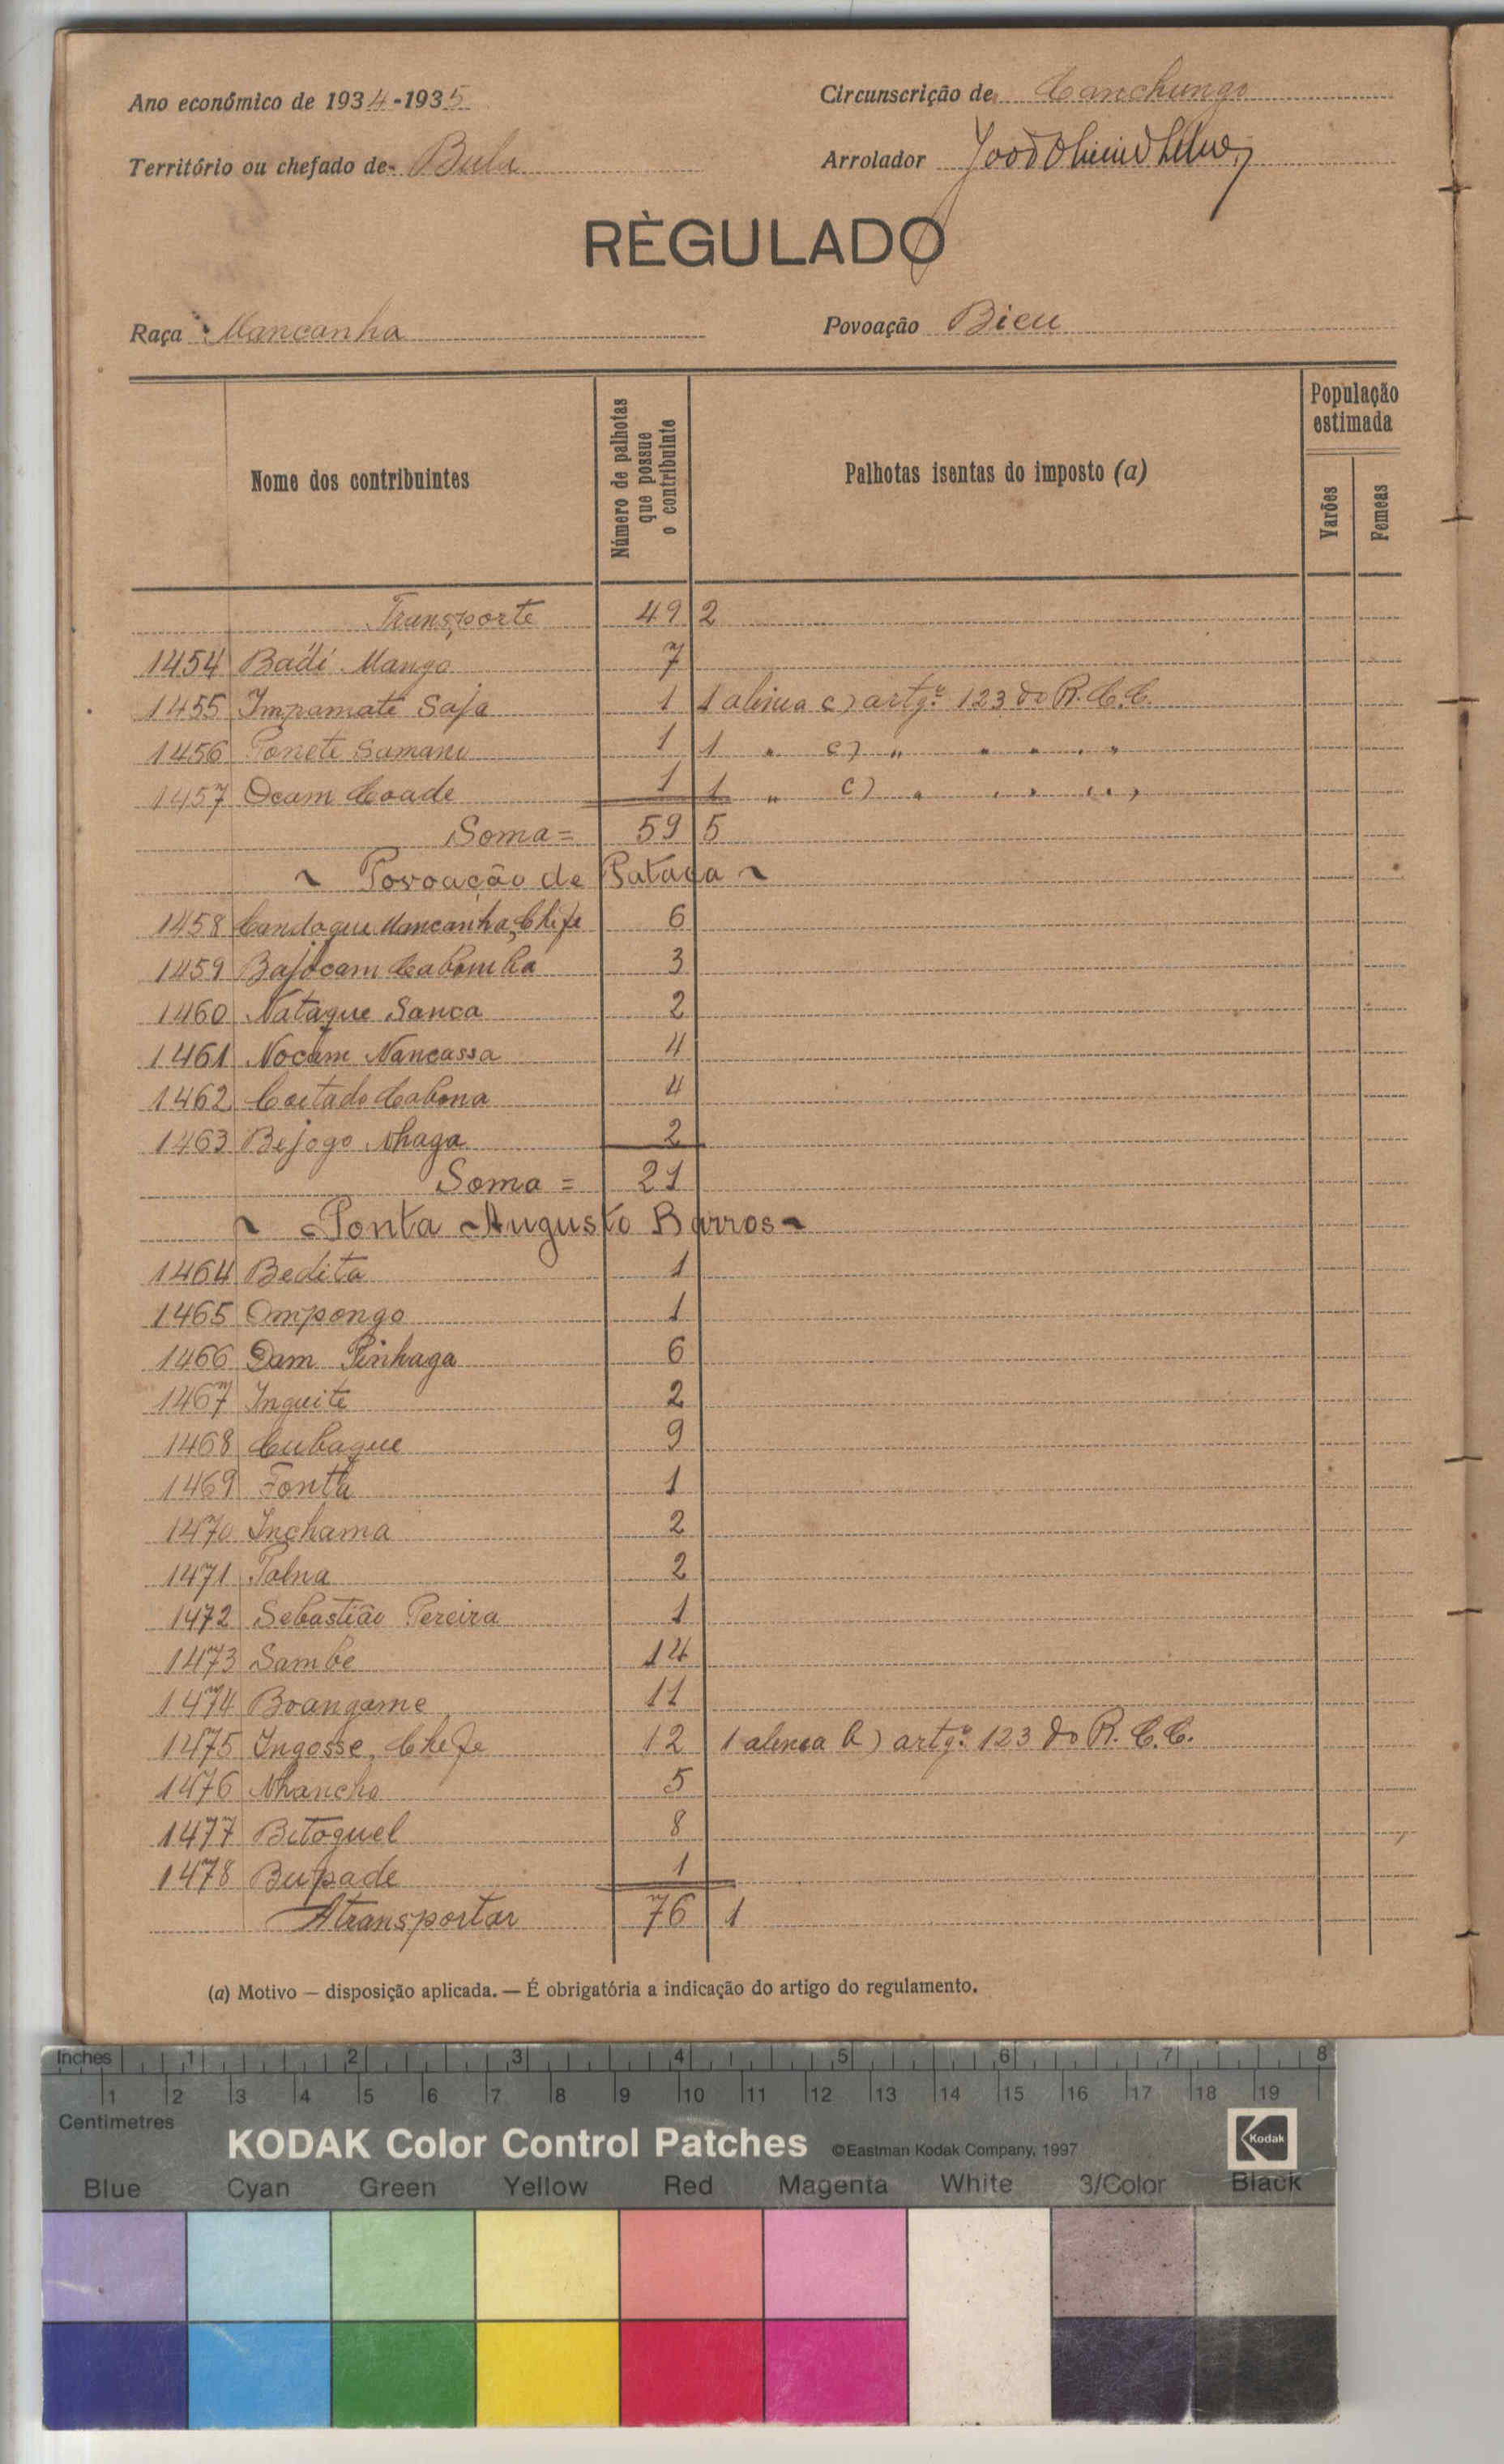 Ano económico de 1934-1935
Circunscrição de Canchungo
Território ou chefado de Bula
Arrolador
RÈGULADO
Raça Mancanha
Povoação Bieu
Nome dos contribuintes
Número de palhotas que possue o contribuinte
Palhotas isentas do imposto (a)
População estimada
Varões
Femeas
Transporte 49 2
1454 Badi Mango 7
1455 Impamate Saja 1 1 alinea c) artgº 123 do R.C.C.
1456 Ponete Samani 1 1 " c) " " " " "
1457 Ocam Coade 1 1 " c) " " " " "
Soma = 59 5
~ Povoação de Patada ~
1458 Candaque Mancanha, Chefe 6
1459 Bajocam Cabomba 3
1460 Nataque Sanca 2
1461 Nocam Nancassa 4
1462 Coitado Cabona 4
1463 Bejogo Nhaga 2
Soma = 21
~ Ponta Augusto Barros ~
1464 Bedita 1
1465 Ompongo 1
1466 Dam Pinhaga 6
1467 Inquite 2
1468 Cubaque 9
1469 Fonta 1
1470 Inchama 2
1471 Palna 2
1472 Sebastião Pereira 1
1473 Sambe 14
1474 Boangame 11
1475 Ingosse, Chefe 12 1 alinea b) artgº 123 do R.C.C.
1476 Nhancho 5
1477 Bitoquel 8
1478 Bupade 1
A transportar 76 1
(a) Motivo — disposição aplicada. — É obrigatória a indicação do artigo do regulamento.
Inches 1 2 3 4 5 6 7 8
1 2 3 4 5 6 7 8 9 10 11 12 13 14 15 16 17 18 19
Centimetres
KODAK Color Control Patches ©Eastman Kodak Company, 1997 Kodak
Blue Cyan Green Yellow Red Magenta White 3/Color Black